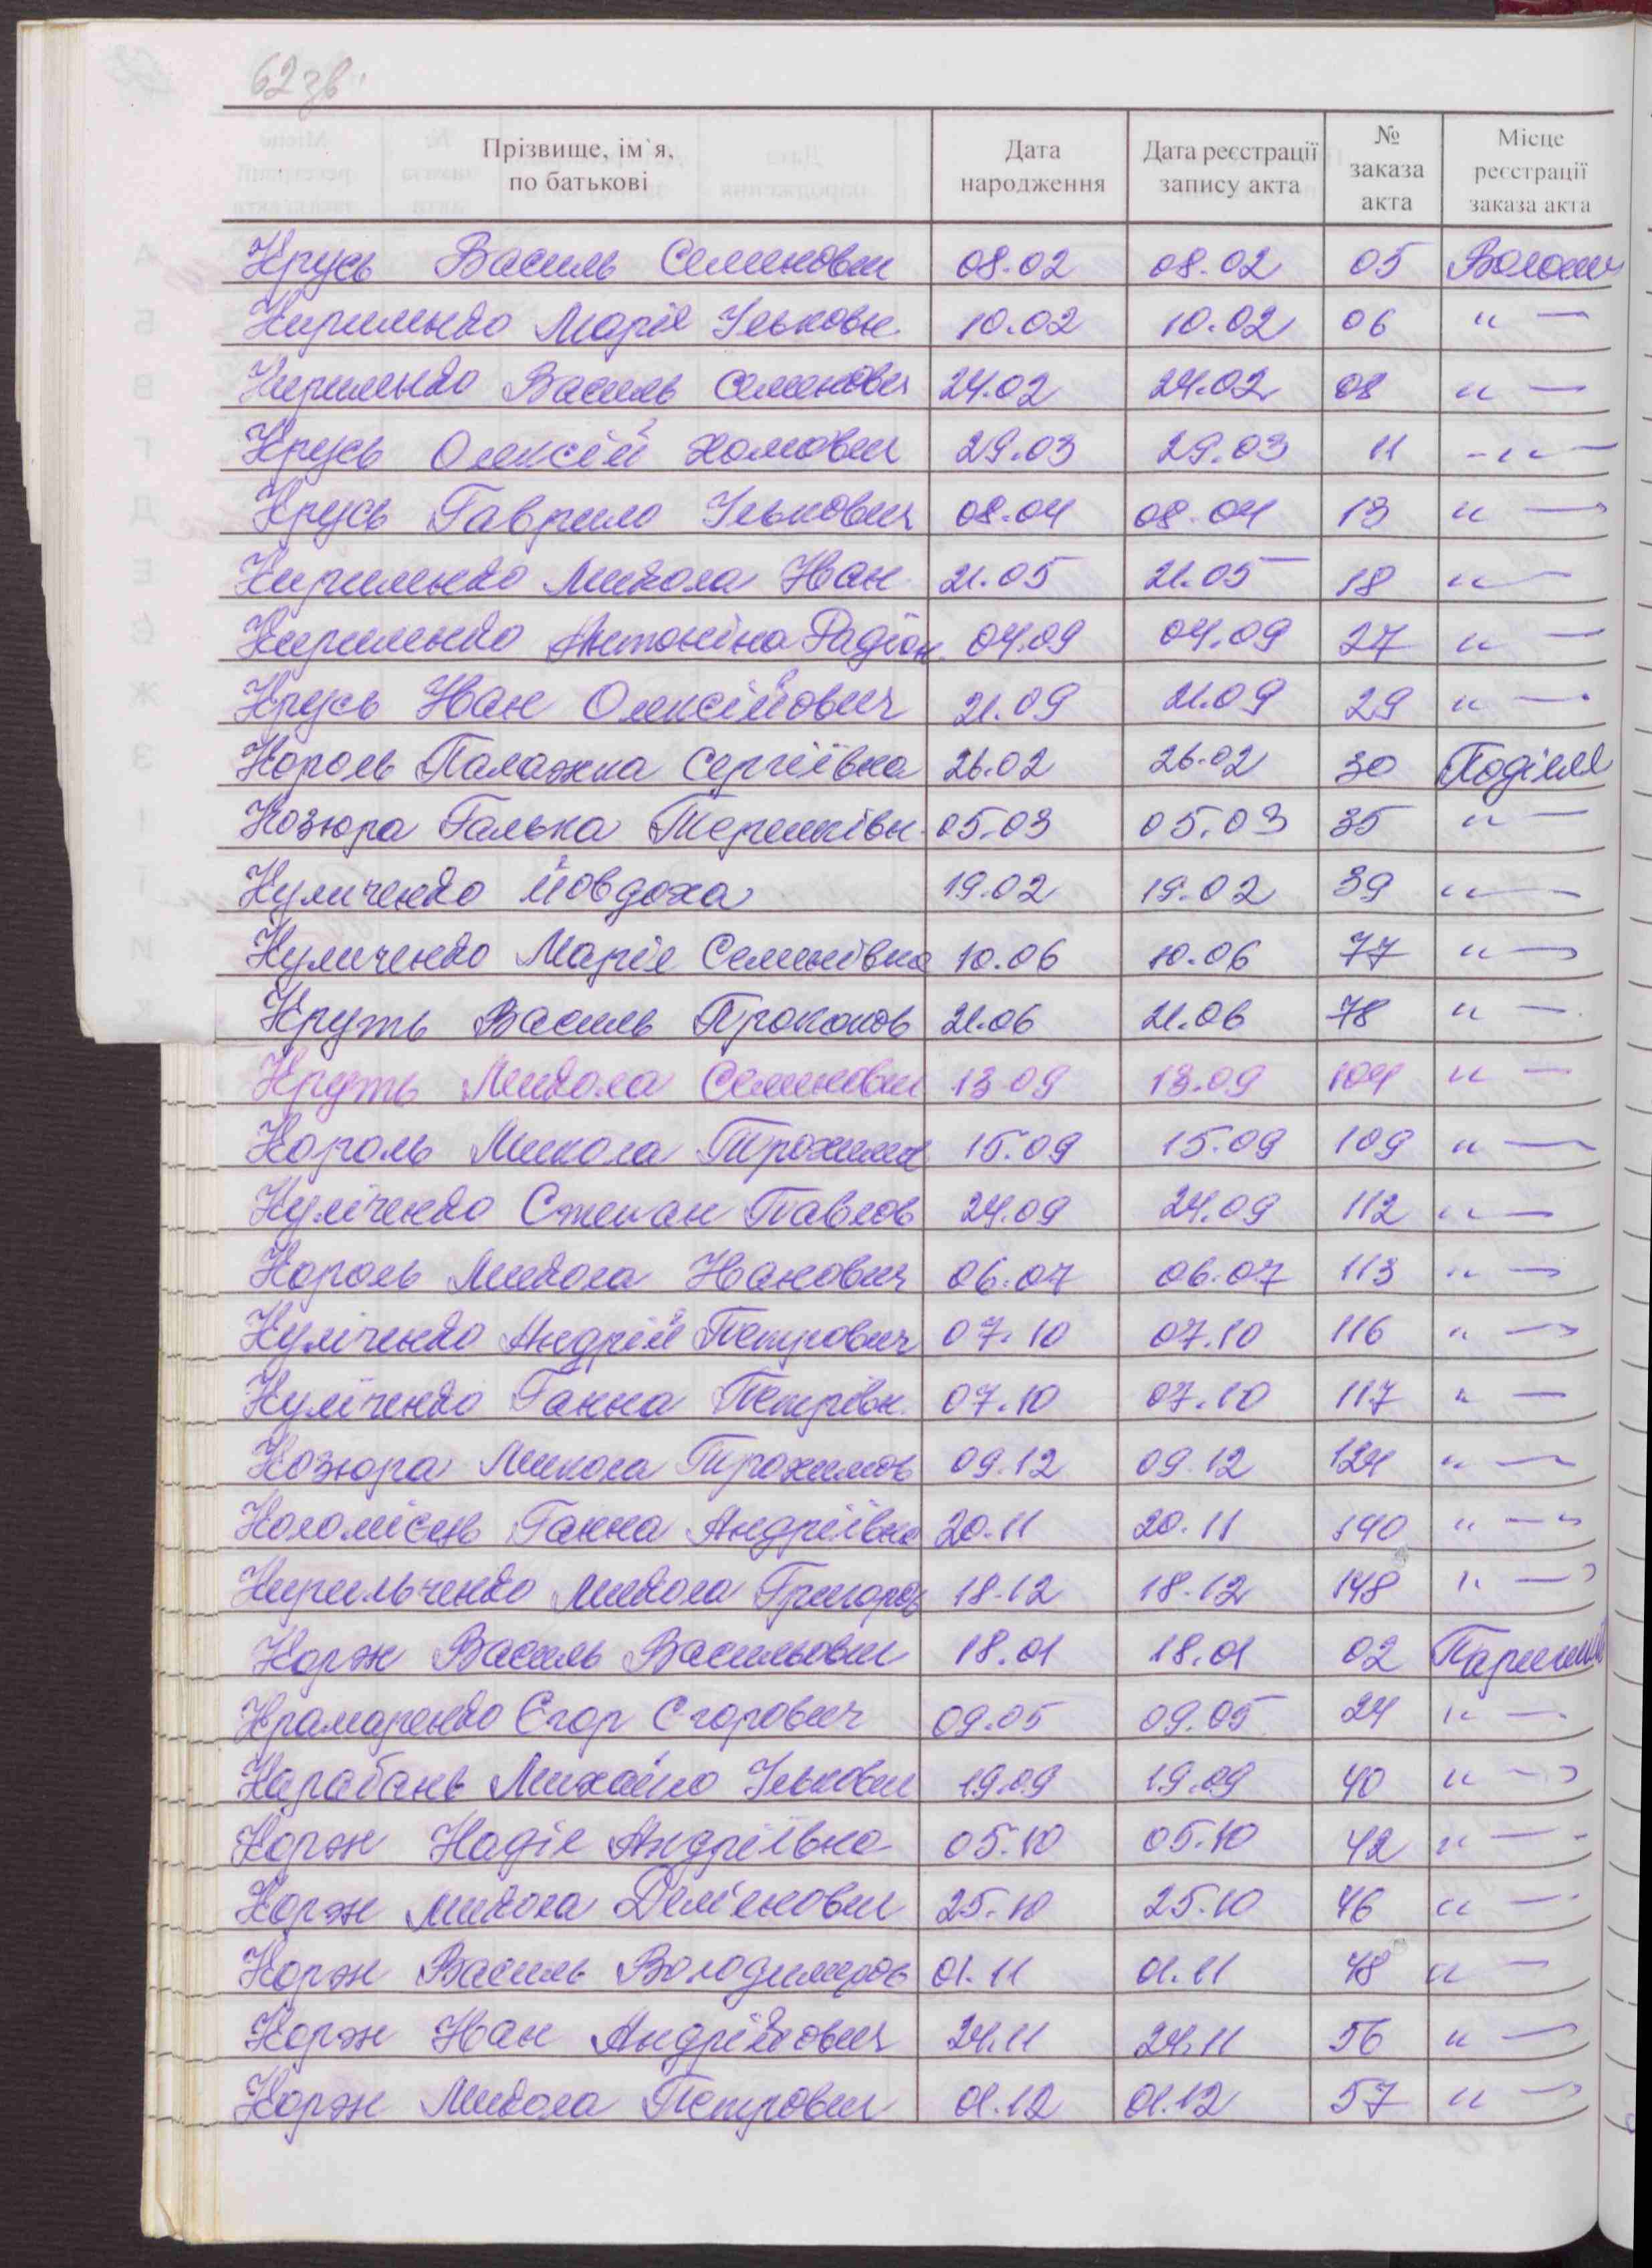 62 зв.
Прізвище, ім`я, по батькові Дата народження Дата реєстрації запису акта № заказа акта Місце реєстрації заказа акта
Крусь Василь Семенович 08.02 08.02 05
Кириленко Марія Ільковн. 10.02 10.02 06 " —
Кириленко Василь Семенович 24.02 24.02 08 " —
Крусь Олексій Хомович 29.03 29.03 11 - " —
Крусь Гаврило Ількович 08.04 08.04 13 " —
Кириленко Микола Іван. 21.05 21.05 18 " —
Кириленко Антоніна Радіон. 04.09 04.09 27 " —
Крусь Іван Олексійович 21.09 21.09 29 " —
Король Палажка Сергіївна 26.02 26.02 30 Поділля
Козюра Галька Терешківн. 05.03 05.03 35 " —
Куличенко Йовдоха 19.02 19.02 39 " —
Куличенко Марія Семенівна 10.06 10.06 77 " —
Круть Василь Прокопов 21.06 21.06 78 " —
Круть Микола Семенович 13.09 13.09 104 " —
Король Микола 15.09 15.09 109 " —
Куліченко Степан Павлов 24.09 24.09 112 " —
Король Микола Іванович 06.07 06.07 113 " —
Куліченко Андрій Петрович 07.10 07.10 116 " —
Куліченко Ганна Петрівн. 07.10 07.10 117 " —
Козюра Микола Трохимов 09.12 09.12 124 " —
Коломієць Ганна Андріївна 20.11 20.11 140 " —
Кирильченко Микола Григоров 18.12 18.12 148 " —
Корж Василь Васильович 18.01 18.01 02
Крамаренко Єгор Єгорович 09.05 09.05 24 " —
Карабань Михайло Ількович 19.09 19.09 40 " —
Корж Надія Андріївна 05.10 05.10 42 " —
Корж Микола Дем'янович 25.10 25.10 46 " —
Корж Василь Володимиров 01.11 01.11 48 " —
Корж Іван Андрійович 24.11 24.11 56 " —
Корж Микола Петрович 01.12 01.12 57 " —